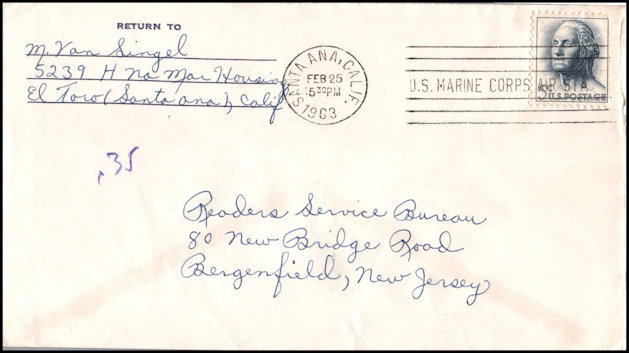 RETURN TO
M. Van Singel
5239 H Na Mar Housing
El Toro (Santa Ana), Calif
SANTA ANA, CALIF.
FEB 25
5 30 PM
1963
U.S. MARINE CORPS AIR STA
5¢ U.S. POSTAGE
.35
Readers Service Bureau
80 New Bridge Road
Bergenfield, New Jersey